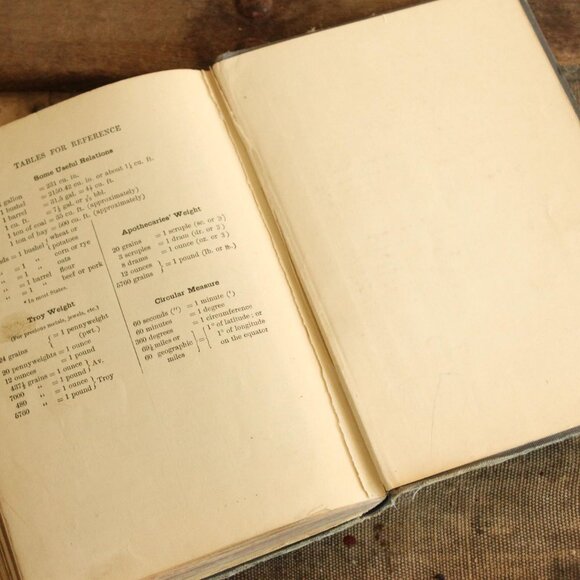 TABLES FOR REFERENCE
Some Useful Relations
gallon = 231 cu. in.
bushel = 2150.42 cu. in. or about 1¼ cu. ft.
1 barrel = 31.5 gal. = 4⅕ cu. ft.
1 cu. ft. = 7½ gal. or bbl.
1 ton of coal = 35 cu. ft. (approximately)
1 ton of hay = 500 cu. ft. (approximately)
= 1 bushel { wheat or potatoes
= 1 " corn or rye
= 1 " oats
= 1 barrel flour
= 1 " beef or pork
* In most States.
Troy Weight
(For precious metals, jewels, etc.)
24 grains { = 1 pennyweight (pwt.)
20 pennyweights = 1 ounce
12 ounces = 1 pound
437½ grains = 1 ounce } Av.
7000 " = 1 pound
480 " = 1 ounce } Troy
5760 " = 1 pound
Apothecaries' Weight
20 grains = 1 scruple (sc. or ℈)
3 scruples = 1 dram (dr. or ʒ)
8 drams = 1 ounce (oz. or ℥)
12 ounces } = 1 pound (lb. or ℔.)
5760 grains
Circular Measure
60 seconds (") = 1 minute (')
60 minutes = 1 degree
360 degrees = 1 circumference
69¼ miles or } = { 1° of latitude; or
60 geographic 1° of longitude
miles on the equator